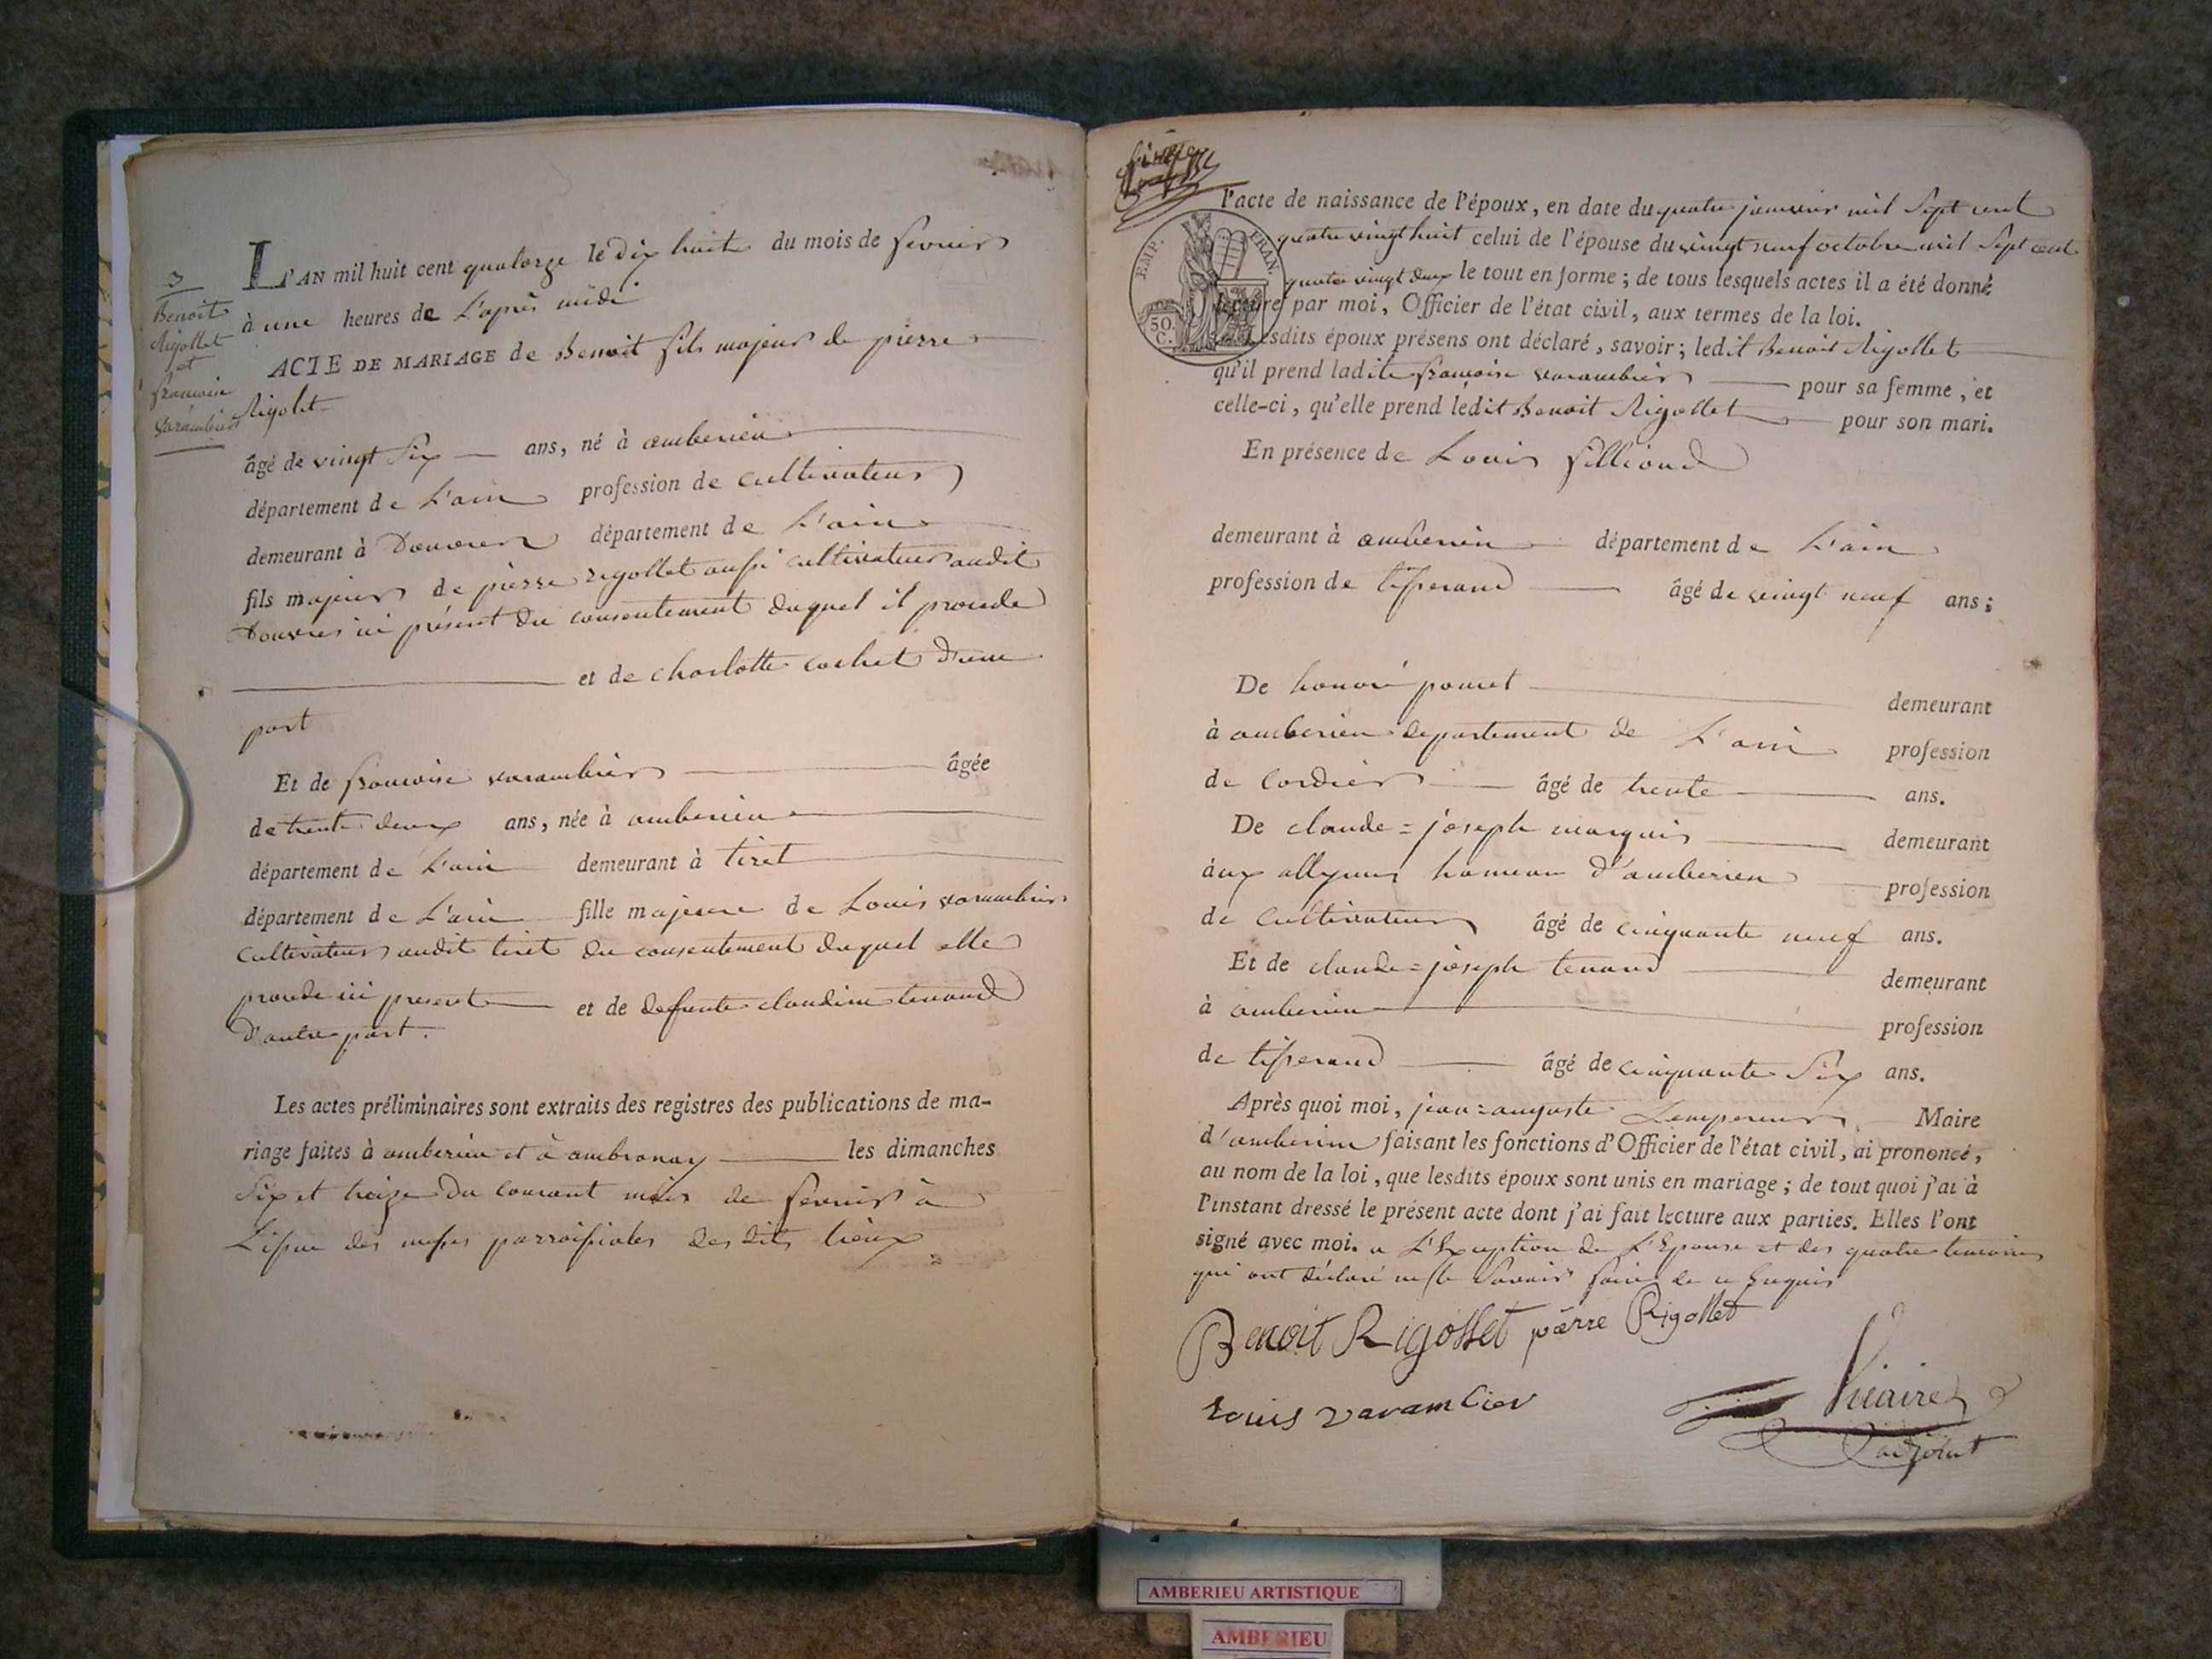 3
Benoit
Rigollet
et
francoise
varambier
L'AN mil huit cent quatorze le dix huit du mois de fevrier
à une heures de L'après midi
ACTE DE MARIAGE de Benoit fils majeur de pierre
Rigolet
âgé de vingt six ans, né à amberieu
département de L'ain profession de cultivateur
demeurant à Douvres département de L'ain
fils majeur de pierre rigollet aussi cultivateur audit
Douvres ici présent du consentement duquel il procede
et de charlotte cochet d'une
part
Et de francoise varambier âgée
de trente deux ans, née à amberieu
département de L'ain demeurant à tiret
département de L'ain fille majeure de Louis varambier
cultivateur audit tiret du consentement duquel elle
procede ici present et de defunte claudine tenand
d'autre part.
Les actes préliminaires sont extraits des registres des publications de ma-
riage faites à amberieu et à ambronay les dimanches
six et treize du courant mois de fevrier à
L'issue des messes parroissiales des dits lieux
l'acte de naissance de l'époux, en date du quatre janvier mil sept cent
quatre vingt huit celui de l'épouse du vingt neuf octobre mil sept cent
quatre vingt deux le tout en forme ; de tous lesquels actes il a été donné
lecture par moi, Officier de l'état civil, aux termes de la loi.
EMP. FRAN.
50.
C.
Lesdits époux présens ont déclaré, savoir ; ledit Benoit Rigollet
qu'il prend ladite francoise varambier pour sa femme, et
celle-ci, qu'elle prend ledit Benoit Rigollet pour son mari.
En présence de Louis fillioud
demeurant à amberieu département de L'ain
profession de tisserand âgé de vingt neuf ans ;
De honoré poncet demeurant
à amberieu departement de L'ain profession
de cordier âgé de trente ans.
De claude=joseph marquis demeurant
aux allymes hameau d'amberieu profession
de cultivateur âgé de cinquante neuf ans.
Et de claude=joseph tenand demeurant
à amberieu profession
de tisserand âgé de cinquante six ans.
Après quoi moi, jean=auguste Lempereur Maire
d'amberieu faisant les fonctions d'Officier de l'état civil, ai prononcé,
au nom de la loi, que lesdits époux sont unis en mariage ; de tout quoi j'ai à
l'instant dressé le présent acte dont j'ai fait lecture aux parties. Elles l'ont
signé avec moi. a L'Exception de L'Epouse et des quatre temoins
qui ont déclaré ne le savoir faire de ce Enquis
Benoit Rigollet pierre Rigollet
Louis varambier
Vicaire
adjoint
AMBERIEU ARTISTIQUE
AMBERIEU